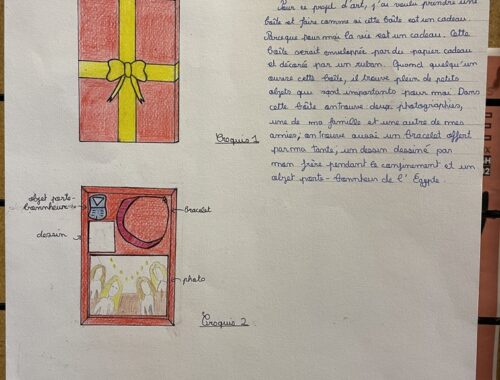 Pour ce projet d'art, j'ai voulu prendre une
boîte et faire comme si cette boîte est un cadeau.
Parceque pour moi la vie est un cadeau. Cette
boîte serait enveloppée par du papier cadeau
et décorée par un ruban. Quand quelqu'un
ouvre cette boîte, il trouve plein de petits
objets qui sont importants pour moi. Dans
cette boîte on trouve deux photographies,
une de ma famille et une autre de mes
amies, on trouve aussi un bracelet offert
par ma tante, un dessin dessiné par
mon frère pendant le confinement et un
objet porte-bonheur de l'Egypte.
Croquis 1
objet porte-
bonnheur
bracelet
dessin
photo
Croquis 2